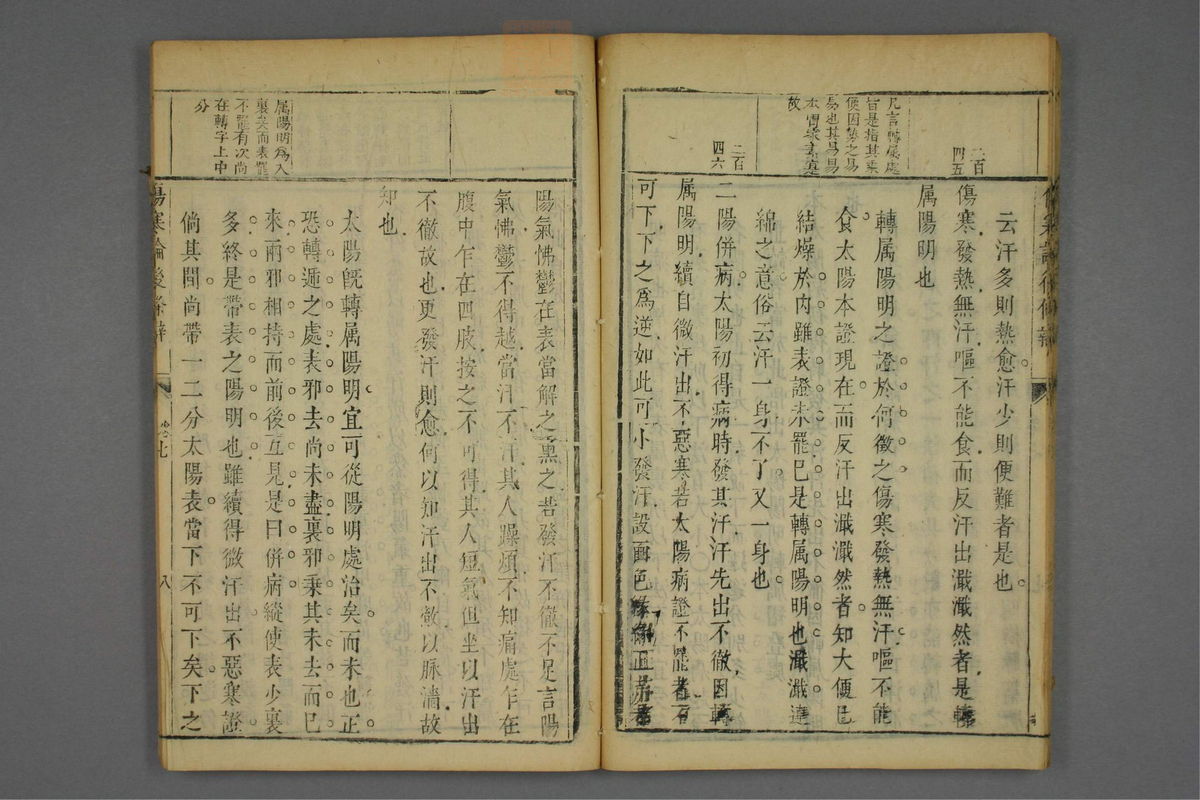 二百
四五
凡言轉属處
皆是指其乘
便因勢之易
易也其易易
故
二百
四六
云汗多則熱愈汗少則便難者是也
傷寒發熱無汗嘔不能食而反汗出濈濈然者是轉
属陽明也
轉属陽明之證於何徵之傷寒發熱無汗嘔不能
食太陽本證現在而反汗出濈濈然者知大便已
結燥於内雖表證未罷已是轉属陽明也濈濈連
綿之意俗云汗一身不了又一身也
二陽併病太陽初得病時發其汗汗先出不徹因轉
属陽明續自微汗出不惡寒若太陽病證不罷者不
可下下之爲逆如此可小發汗設面色緣緣正赤者
属陽明爲入
裏矣而表罷
不罷有次尚
在轉字上中
分
陽氣怫鬱在表當解之熏之若發汗不徹不足言陽
氣怫鬱不得越當汗不汗其人躁煩不知痛處乍在
腹中乍在四肢按之不可得其人短氣但坐以汗出
不徹故也更發汗則愈何以知汗出不徹以脉濇故
知也
太陽旣轉属陽明宜可從陽明處治矣而未也正
恐轉遞之處表邪去尚未盡裏邪乘其未去而已
來兩邪相持而前後互見是曰併病縱使表少裏
多終是帶表之陽明也雖續得微汗出不惡寒證
倘其間尚帶一二分太陽表當下不可下矣下之
傷寒論後條辨
卷七
八